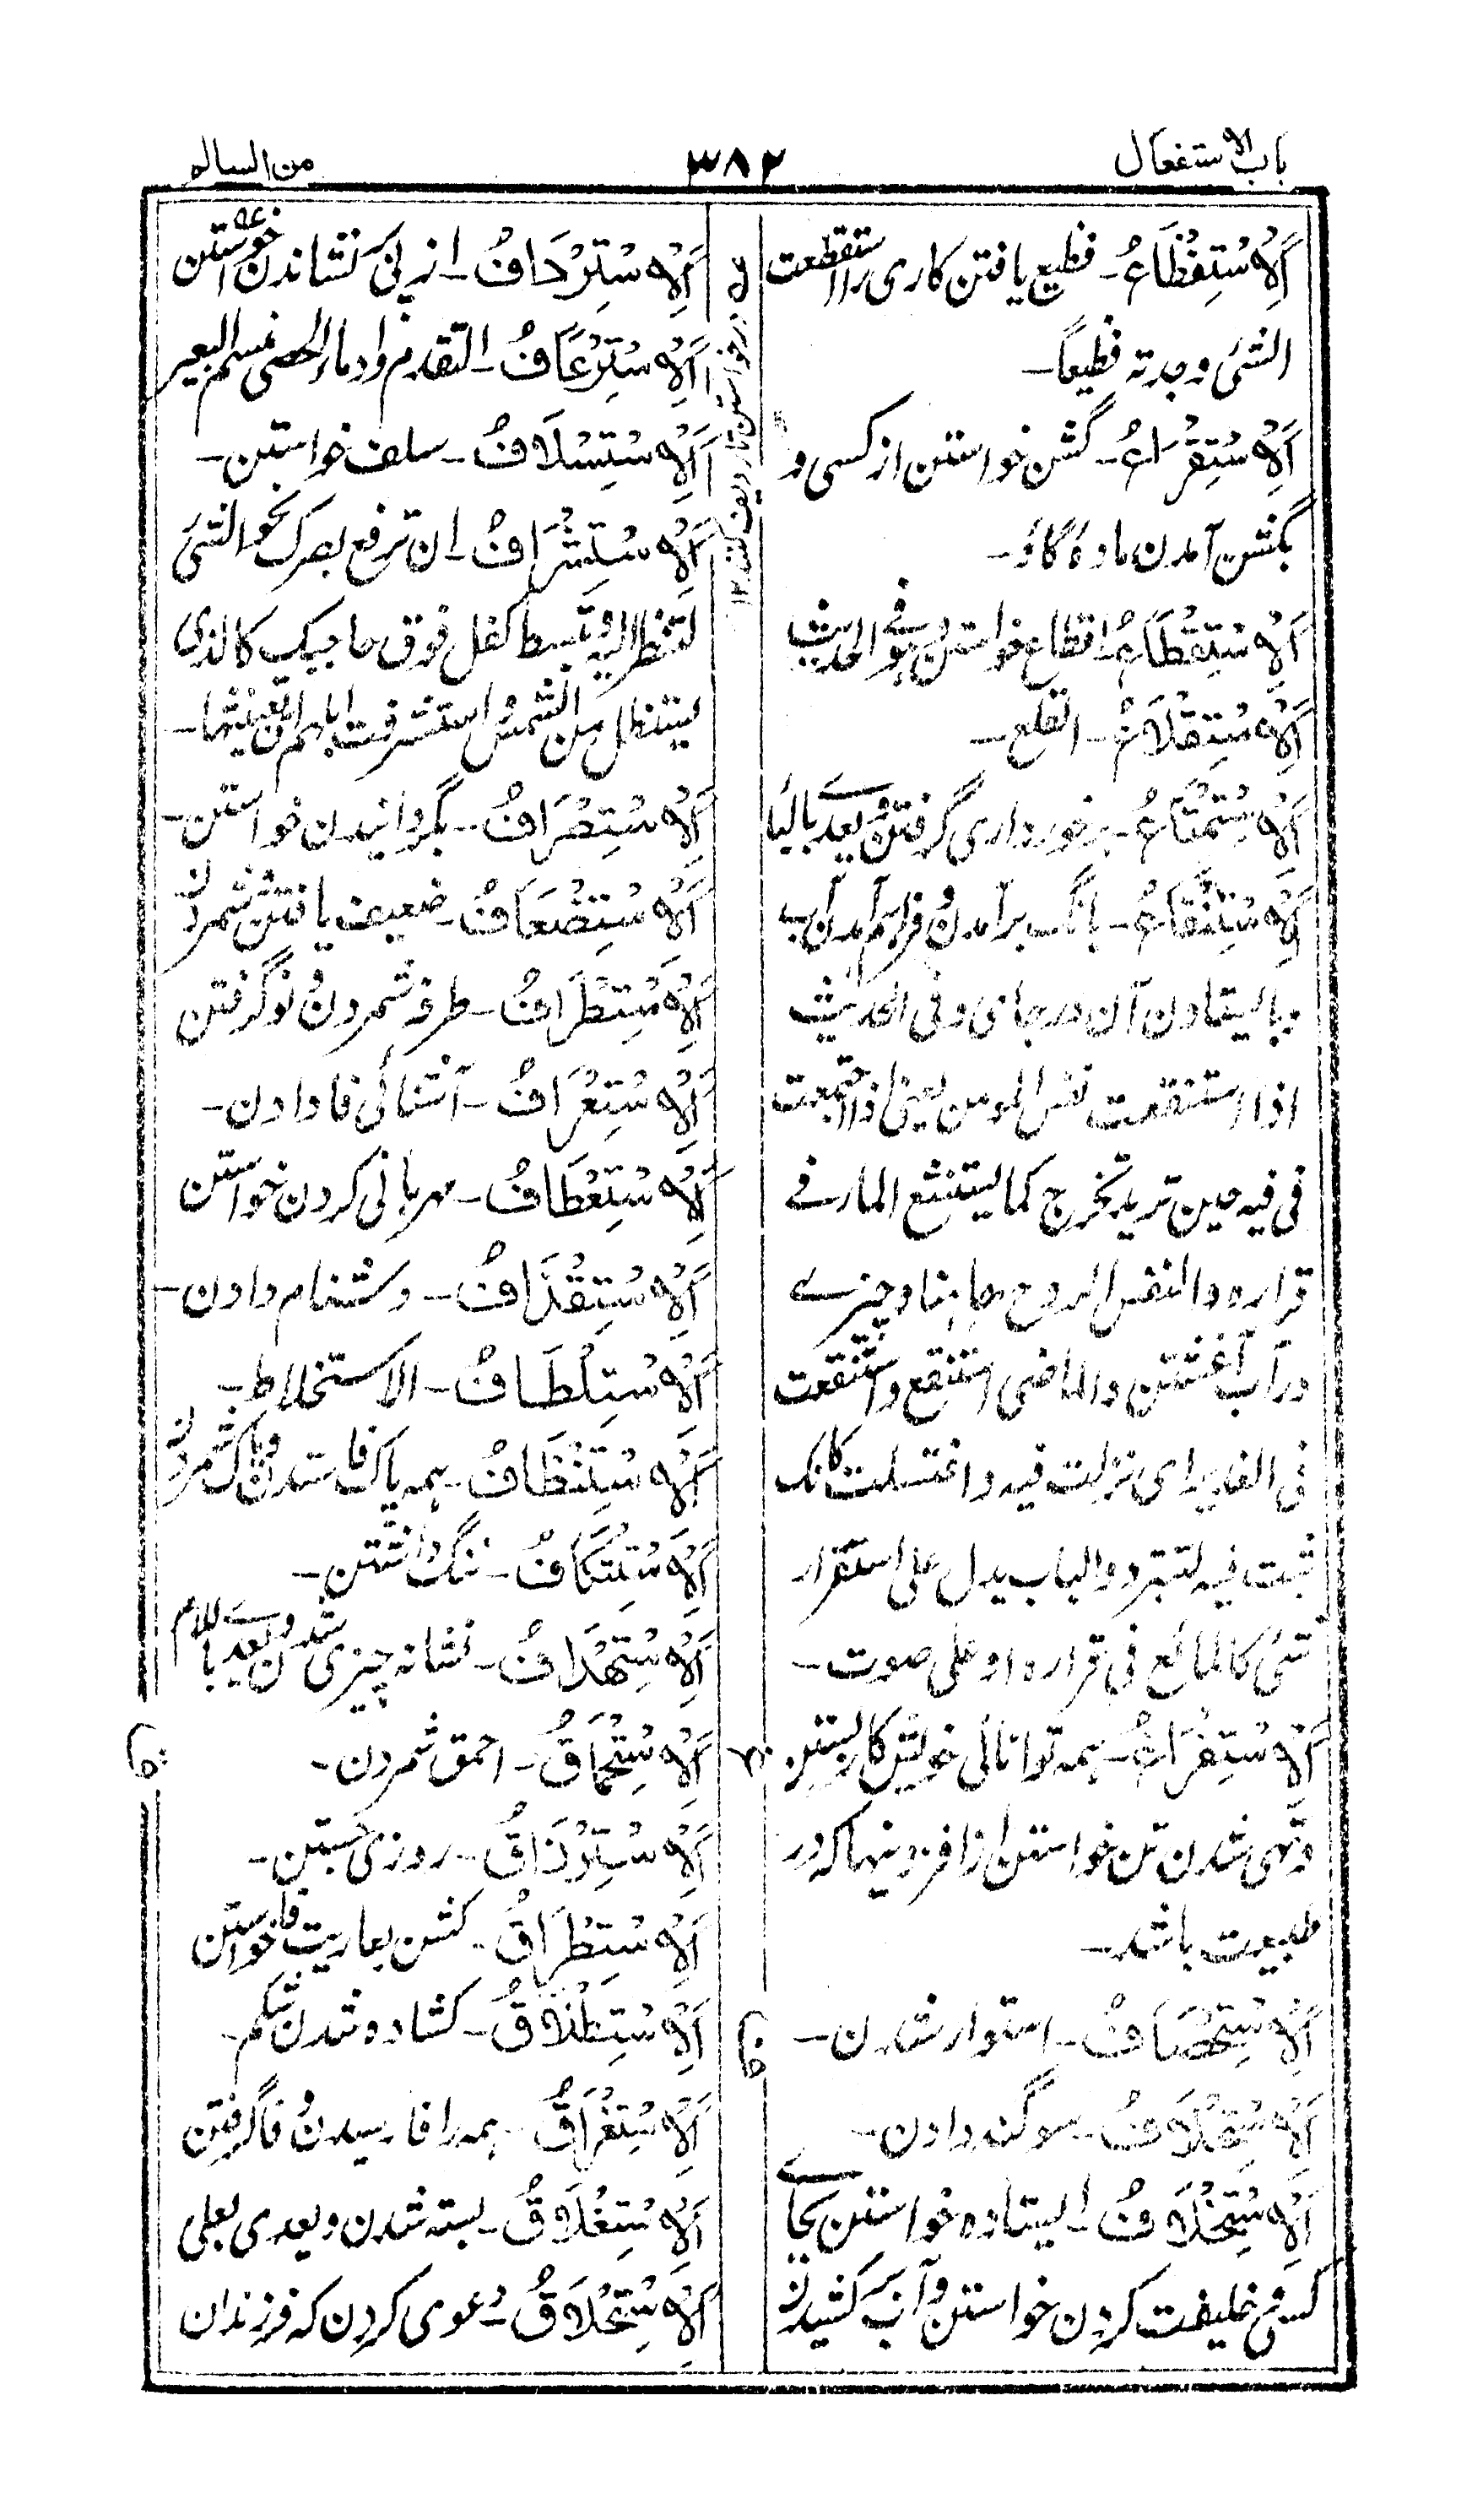 باب الاستفعال
٣٨٢
من السالم
اَلْاِسْتِفْظَاعُ ـ فظیع یافتن کاری را استفظعت
الشئ وجدته فظیعاً ـ
اَلْاِسْتِقْرَاعُ ـ گشن خواستن از کسی و
بگشن آمدن مادهٔ گاؤ ـ
اَلْاِسْتِقْطَاعُ ـ اقطاع خواستن وهو فی الحدیث
اَلْاِسْتِقْلَاعُ ـ القلع ـ
اَلْاِسْتِمْتَاعُ ـ برخورداری گرفتن ویعدے بالبا
اَلْاِسْتِنْقَاعُ ـ بانگ برآمدن و فراهم آمدن آب
وبایستادن آن در جای وفی الحدیث
اذا استنقعت نفس المومن یعنی اذا اجتمعت
فی فیه حین ترید تخرج کما یستنقع الماء فے
قراره والنفس الروح هاهنا وچیزے
در آب آغشتن والماضی استنقع واستنقعت
فی الغدیر ای نزلت فیه واغتسلت کانک
ثبت فیه لتبترد والباب یدل علی استقرار
شئ کالمائع فی قراره او علی صوت ـ
اَلْاِسْتِفْرَاغُ ـ همه توانائی خویش کار بستن
وتهی شدن تن خواستن از افزونیها که در
طبیعت باشد ـ
اَلْاِسْتِحْصَافُ ـ استوار شدن ـ
اَلْاِسْتِحْلَافُ ـ سوگند دادن ـ
اَلْاِسْتِخْلَافُ ـ ایستاده خواستن بجاے
کسی و خلیفت کردن خواستن و آب کشیدن
اَلْاِسْتِرْدَافُ ـ از پی کسی نشاندن خواستن
اَلْاِسْتِرْعَافُ ـ التقدم وادماء الحصی منسم البعیر
اَلْاِسْتِسْلَافُ ـ سلف خواستن ـ
اَلْاِسْتِشْرَافُ ـ ان ترفع بصرک نحو الشئ
لتنظر الیه وتبسط کفک فوق حاجبک کالذی
یستظل من الشمس واستشرفت ابلهم ای تعینتها ـ
اَلْاِسْتِصْرَافُ ـ بگردانیدن خواستن ـ
اَلْاِسْتِضْعَافُ ـ ضعیف یافتن و شمردن
اَلْاِسْتِطْرَافُ ـ طرفه شمردن و نو گرفتن
اَلْاِسْتِعْرَافُ ـ آشنائی فا دادن ـ
اَلْاِسْتِعْطَافُ ـ مهربانی کردن خواستن
اَلْاِسْتِقْذَافُ ـ دشنام دادن ـ
اَلْاِسْتِلْطَافُ ـ الاستخلاط ـ
اَلْاِسْتِنْظَافُ ـ همه پاک فا ستدن و پاک شمردن
اَلْاِسْتِنْكَافُ ـ ننگ داشتن ـ
اَلْاِسْتِهْدَافُ ـ نشانه چیزی شدن ویعدے باللام
ق
اَلْاِسْتِحْمَاقُ ـ احمق شمردن ـ
اَلْاِسْتِرْزَاقُ ـ روزی جستن ـ
اَلْاِسْتِطْرَاقُ ـ گشن بعاریت فا خواستن
اَلْاِسْتِطْلَاقُ ـ گشاده شدن شکم ـ
اَلْاِسْتِغْرَاقُ ـ همه را فا رسیدن و فا گرفتن
اَلْاِسْتِغْلَاقُ ـ بسته شدن ویعدی بعلی
اَلْاِسْتِلْحَاقُ ـ دعوی کردن که فرزندان